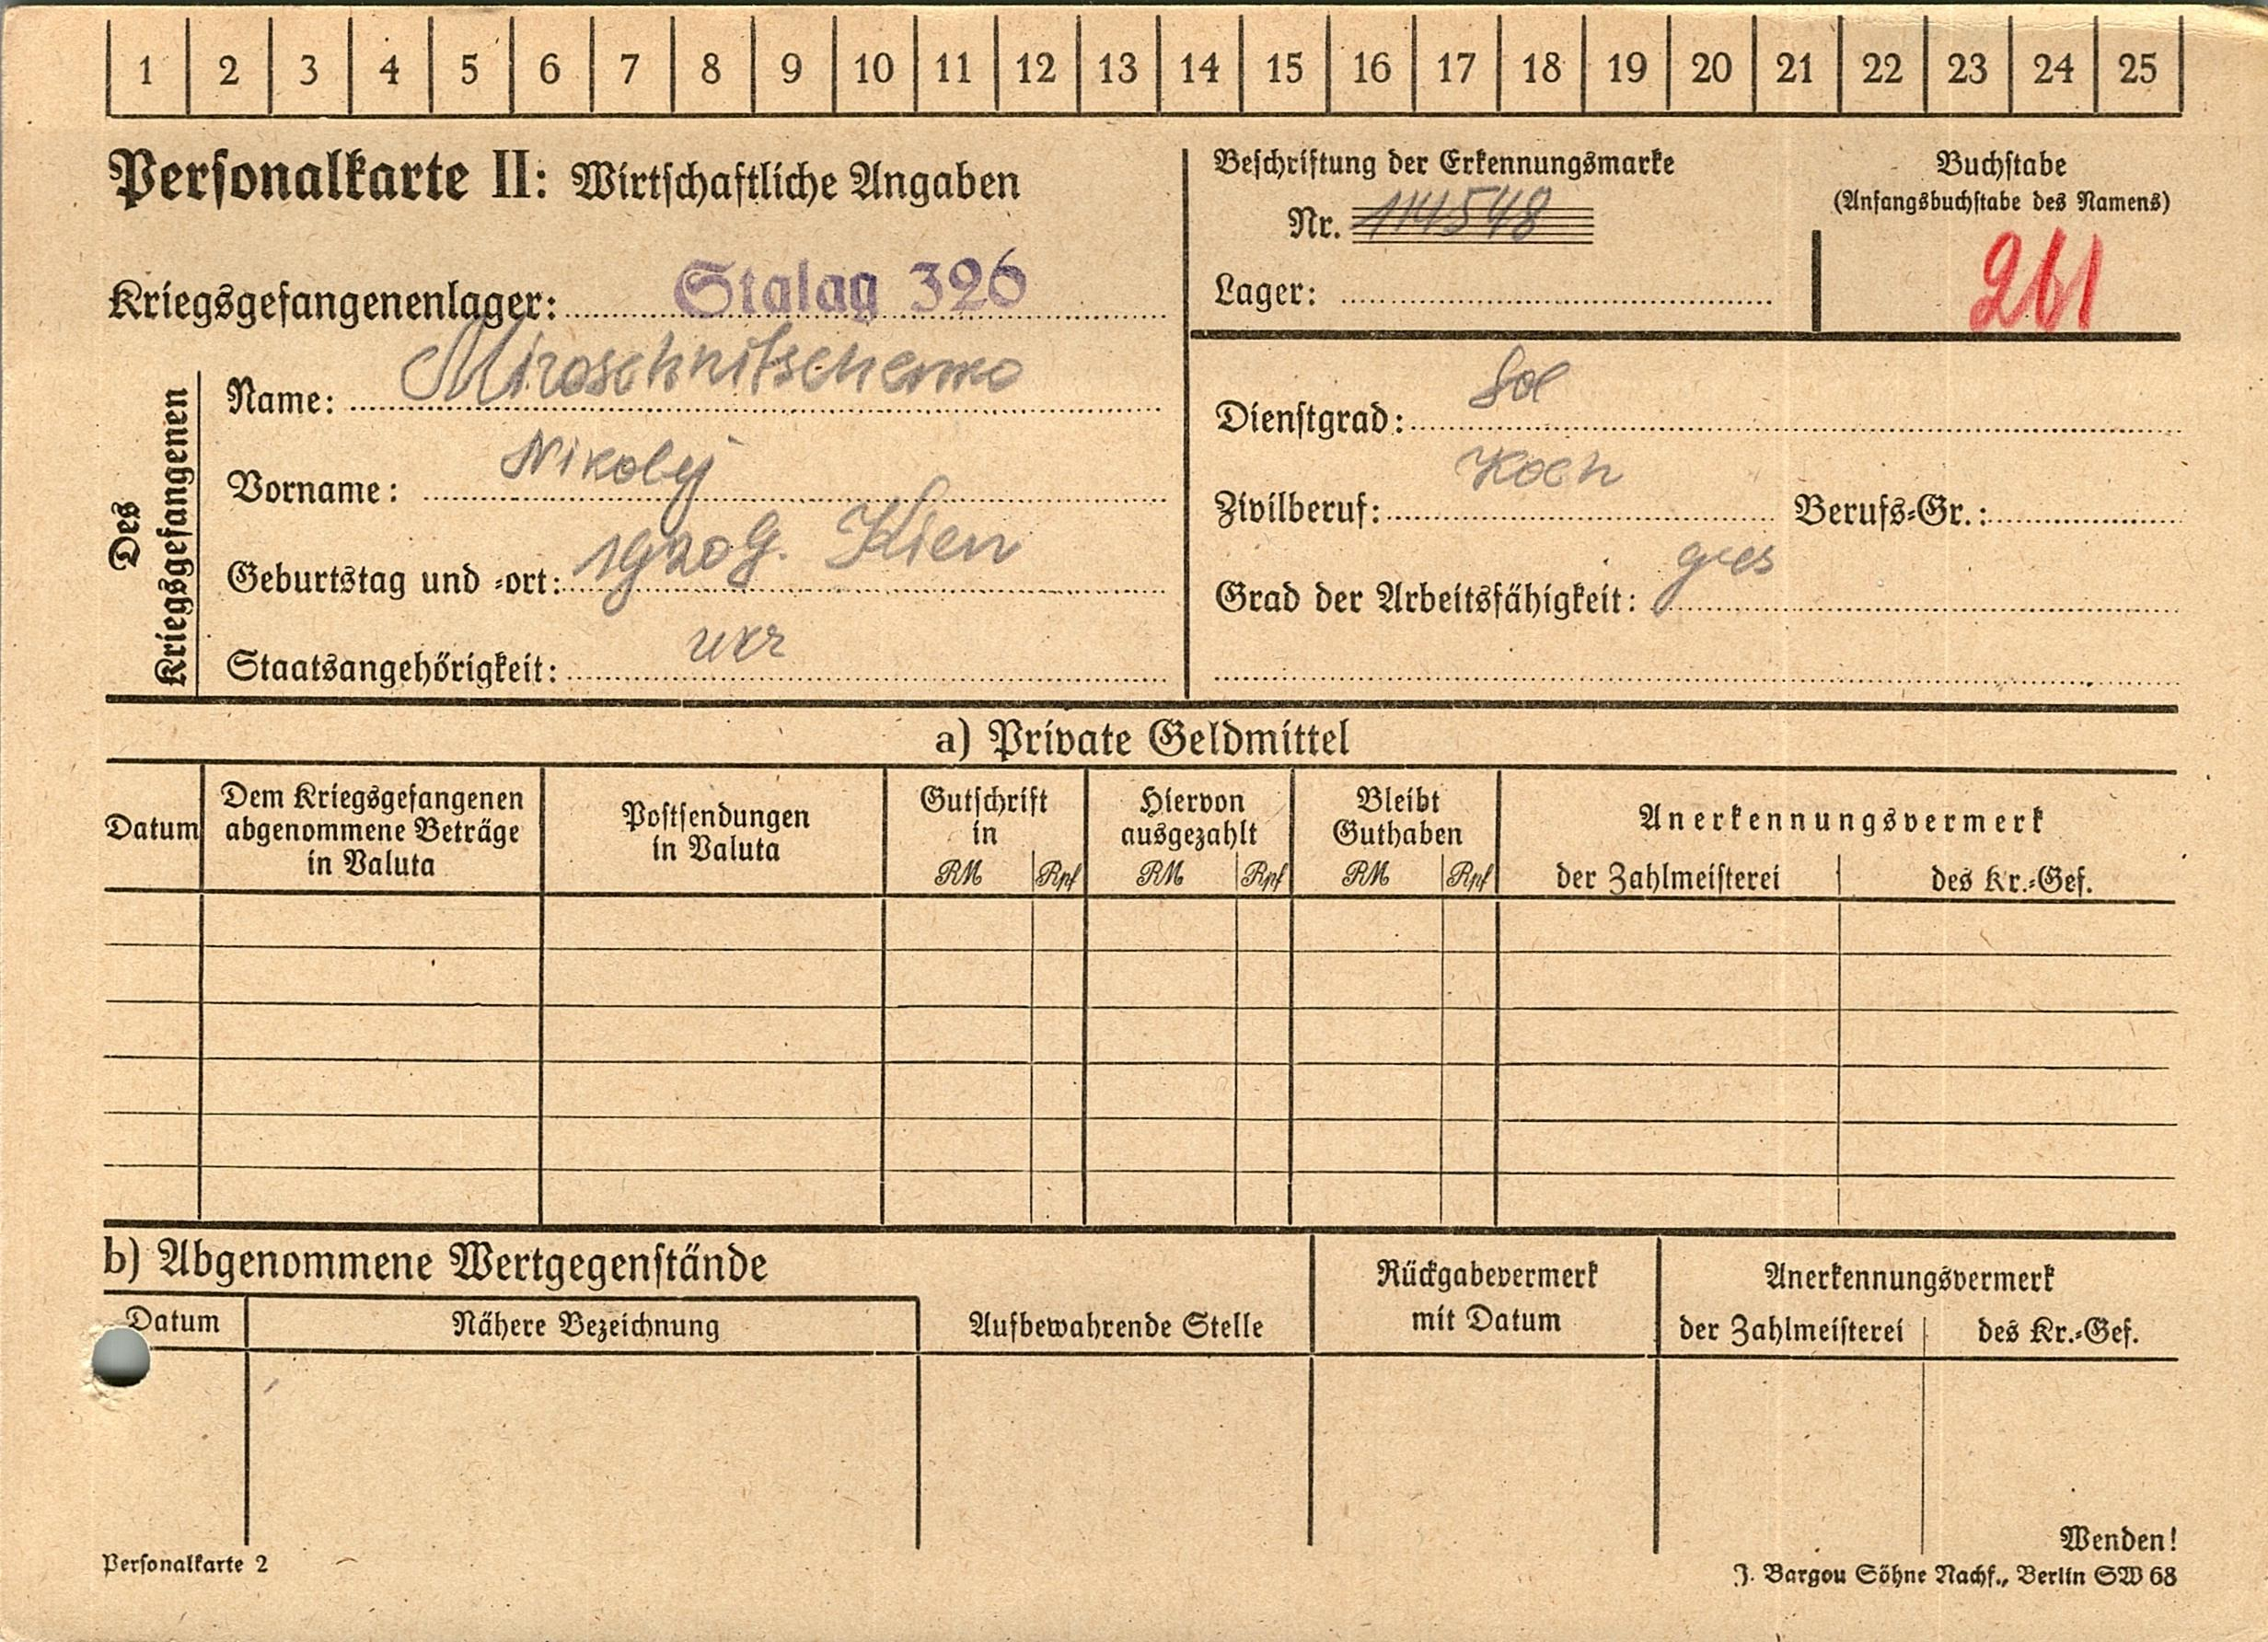 1 2 3 4 5 6 7 8 9 10 11 12 13 14 15 16 17 18 19 20 21 22 23 24 25
Personalkarte II: Wirtschaftliche Angaben
Kriegsgefangenenlager: Stalag 326
Beschriftung der Erkennungsmarke
Nr. 114548
Lager:
Buchstabe
(Anfangsbuchstabe des Namens)
261
Des Kriegsgefangenen
Name: Miroschnitschenko
Vorname: Nikolej
Geburtstag und -ort: 1920 g. Kiew
Staatsangehörigkeit: ukr
Dienstgrad: Sol
Zivilberuf: Koch Berufs-Gr.:
Grad der Arbeitsfähigkeit: ges
a) Private Geldmittel
Datum
Dem Kriegsgefangenen
abgenommene Beträge
in Valuta
Postsendungen
in Valuta
Gutschrift
in
RM Rpf
Hiervon
ausgezahlt
RM Rpf
Bleibt
Guthaben
RM Rpf
Anerkennungsvermerk
der Zahlmeisterei des Kr.-Gef.
b) Abgenommene Wertgegenstände
Datum Nähere Bezeichnung
Aufbewahrende Stelle
Rückgabevermerk
mit Datum
Anerkennungsvermerk
der Zahlmeisterei des Kr.-Gef.
Wenden!
Personalkarte 2
J. Bargou Söhne Nachf., Berlin SW 68